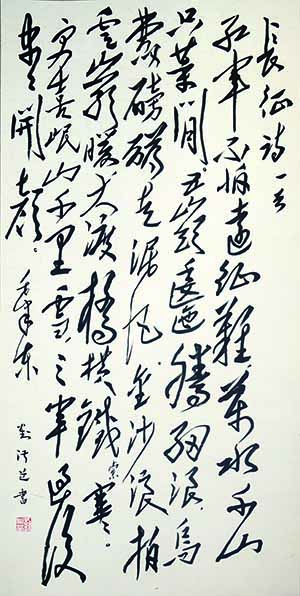 長征詩一首
紅軍不怕遠征難萬水千山
只等閒。五嶺逶迤騰細浪、烏
蒙磅礴走泥丸。金沙浪拍
雲崖暖大渡橋橫鐵索寒。
更喜岷山千里雪三軍過後
盡開顏。毛澤東
書